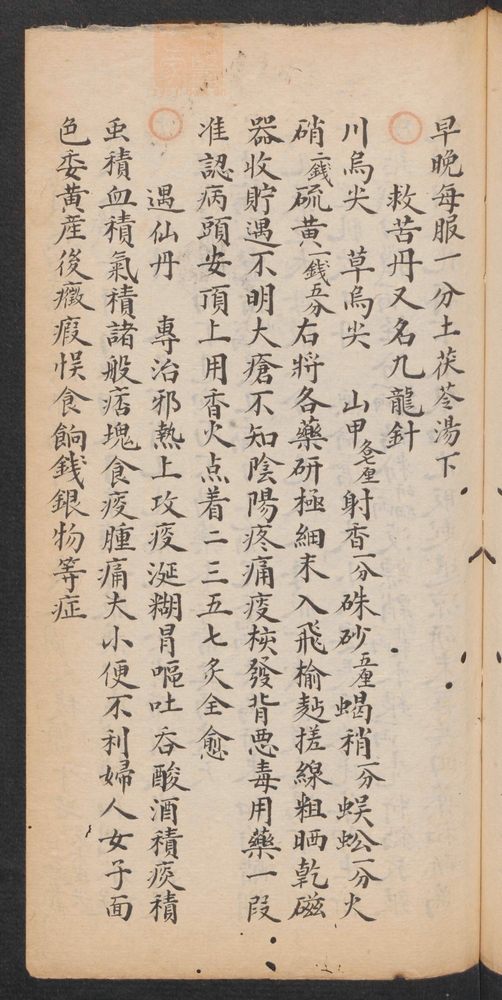 早晚每服一分土茯苓湯下
救苦丹又名九龍針
川烏尖 草烏尖 山甲各七厘射香一分硃砂五厘蝎稍一分蜈蚣一分火
硝一錢硫黃一錢五分右將各藥研極細末入飛榆麪搓線粗晒乾磁
器收貯遇不明大瘡不知陰陽疼痛痰核發背悪毒用藥一段
准認病頭安頂上用香火点着二三五七炙全愈
遇仙丹 專治邪熱上攻痰涎糊胃嘔吐吞酸酒積痰積
虫積血積氣積諸般痞塊食痰腫痛大小便不利婦人女子面
色委黃産後癥瘕悮食餉錢銀物等症